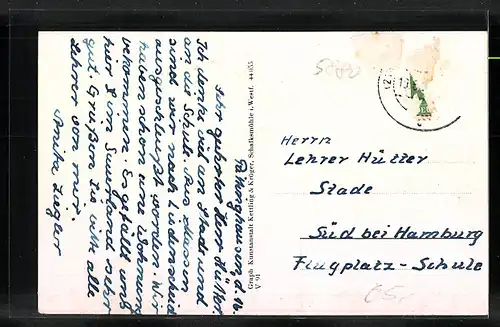 Sehr geehrter Herr Hütter.
Ich denke viel an Stade und
an die Schule. Aus Hausen
sind wir nach Lüdenscheid
ausgeschleußt worden. Wir
haben schon eine Wohnung
bekommen. Es gefällt uns
hier im Sauerland sehr
gut. Grüßen Sie bitte alle
Lehrer von mir.
Anita Ziegler
Graph. Kunstanstalt Kersting & Krüger, Schalksmühle i. Westf. 44055
V 91
Herrn
Lehrer Hütter
Stade
Süd bei Hamburg
Flugplatz-Schule
65,-